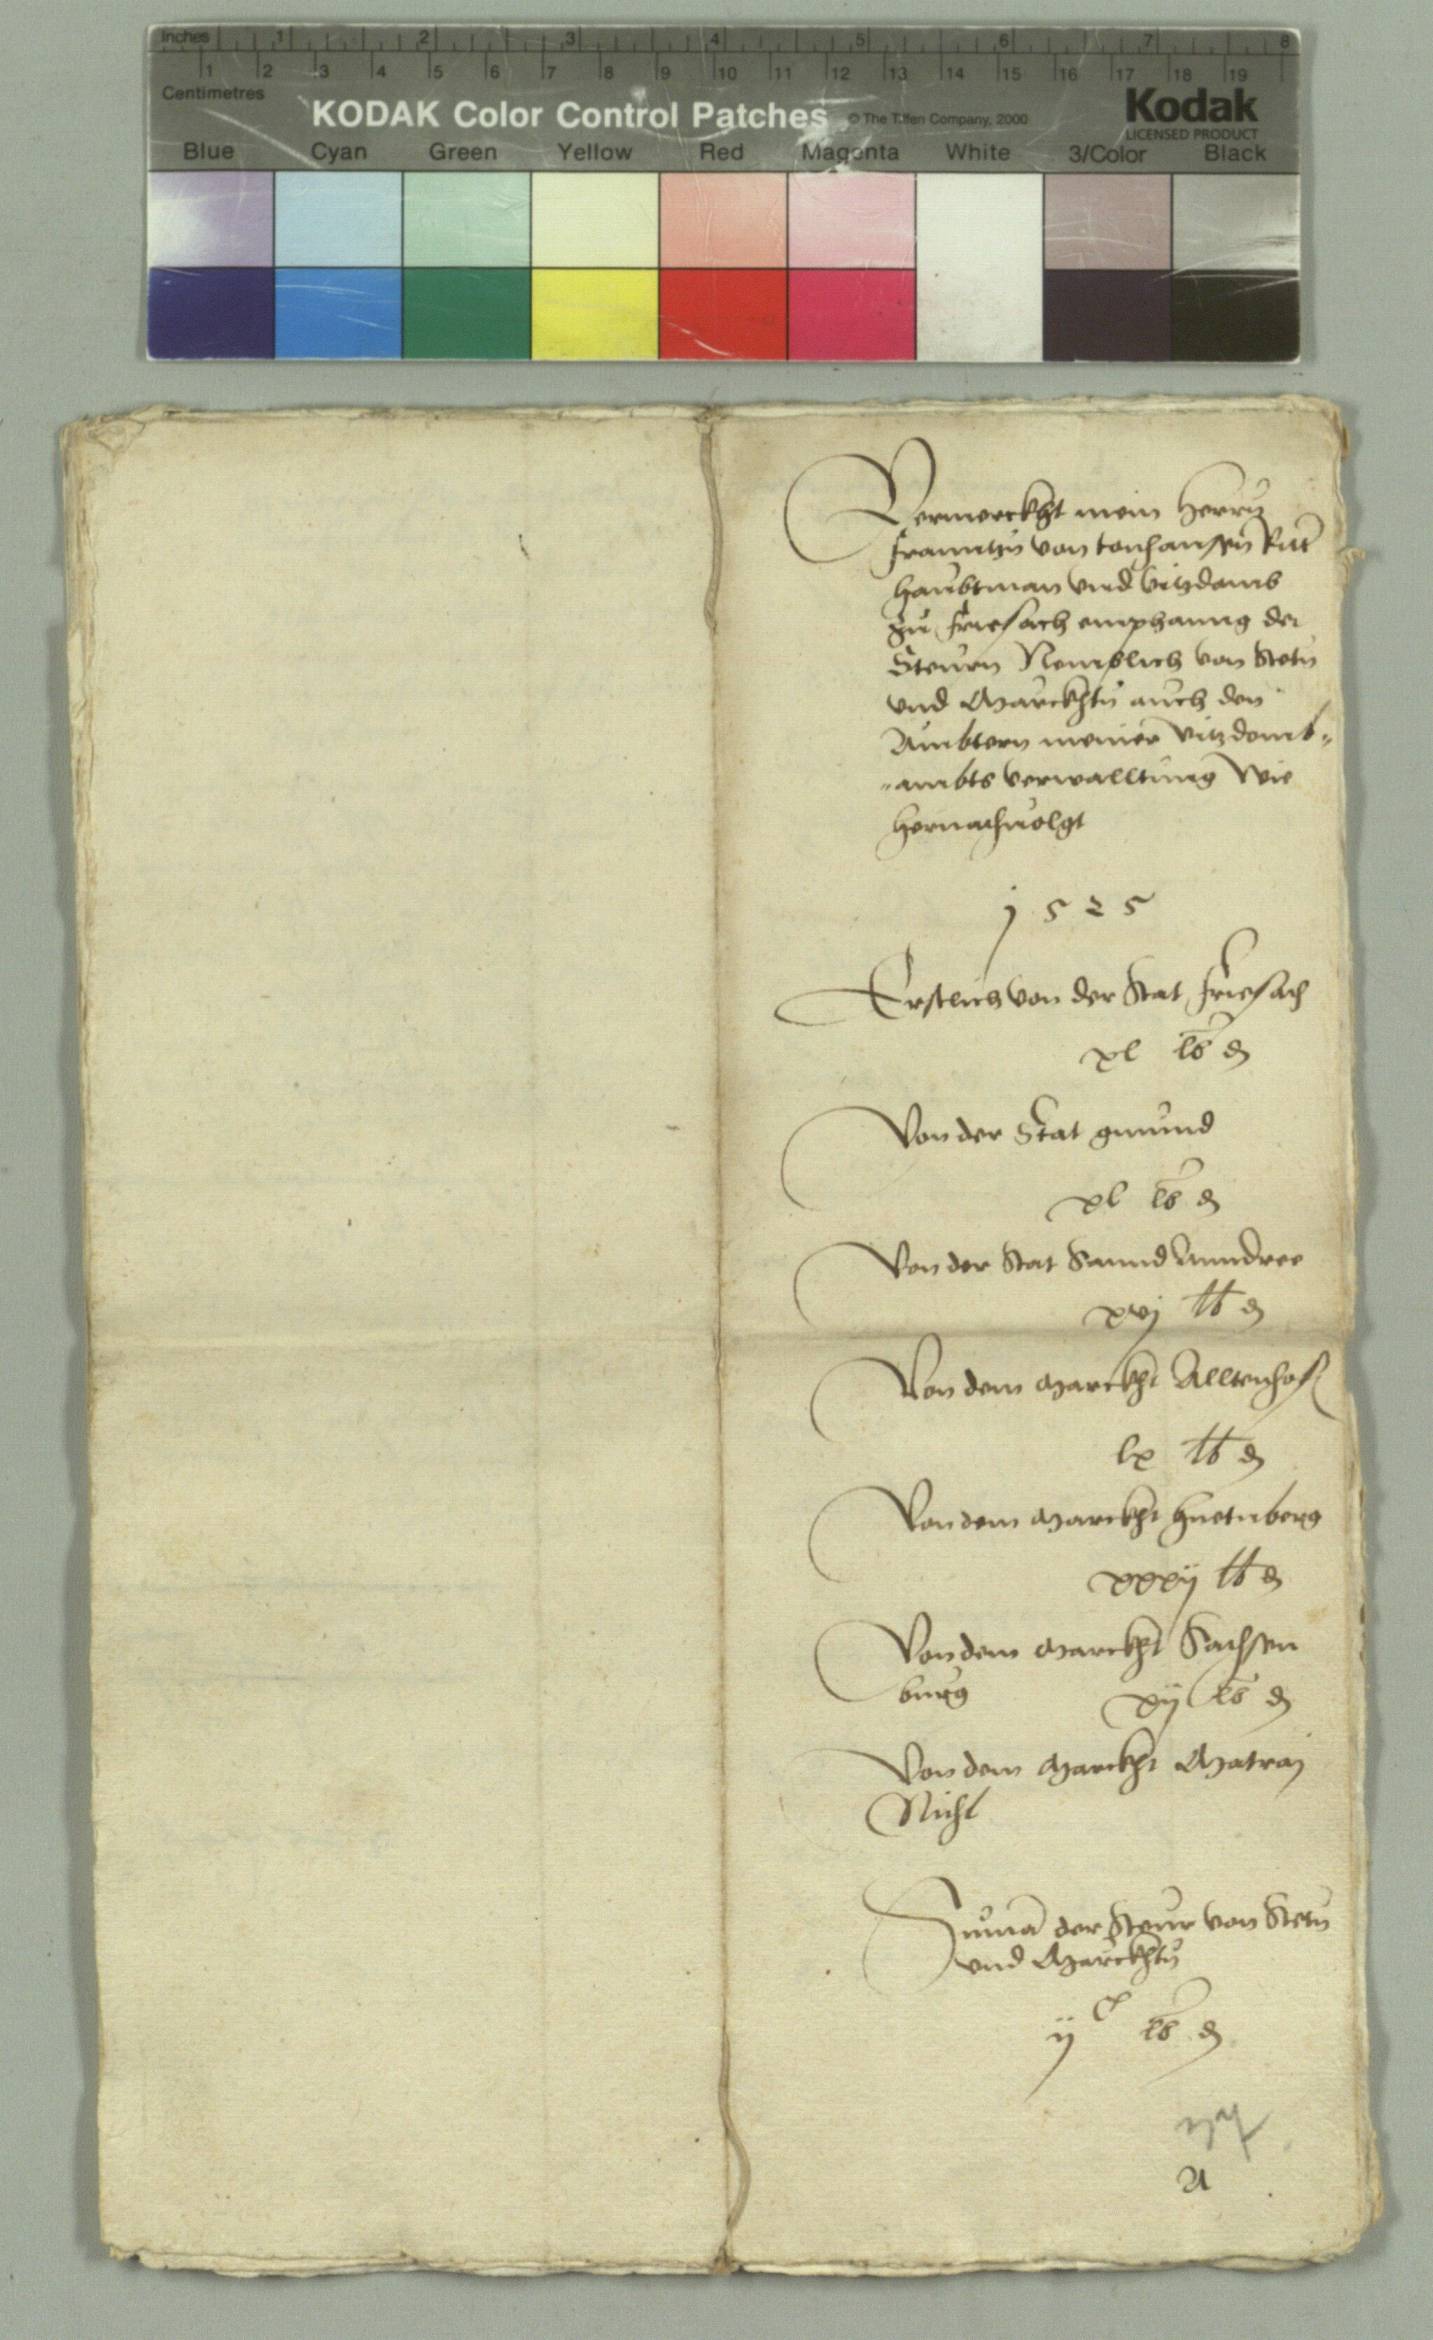 Inches 1 2 3 4 5 6 7 8
1 2 3 4 5 6 7 8 9 10 11 12 13 14 15 16 17 18 19
Centimetres
KODAK Color Control Patches © The Tiffen Company, 2000 Kodak
LICENSED PRODUCT
Blue Cyan Green Yellow Red Magenta White 3/Color Black
Vermerckht mein Herrn
von tonhausen Ritt
haubtman vnd vitzdomb
zu Friesach emphanng der
Steurn Nemblich von Stetn
vnd Marckhtn auch den
Ambtern meiner vitzdomb-
-ambts verwalltung Wie
hernachuolgt
1525
Erstlich von der Stat Friesach
xl lb d
Von der Stat gmund
xl lb d
Von der Stat Sannd Anndree
xvj lb d
Von dem Marckht Alltenhof
lx lb d
Von dem Marckht huetnberg
xxxij lb d
Von dem Marckht Sachsen
burg xij lb d
Von dem Marckht Matraj
Nicht
Suma der Steur von Stetn
vnd Marckhtn
ij c lb d